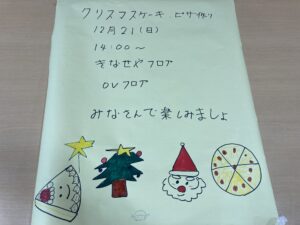 クリスマスケーキ ピザ作り
12月21(日)
14:00〜
きなせやフロア
OVフロア
みなさんで楽しみましょ